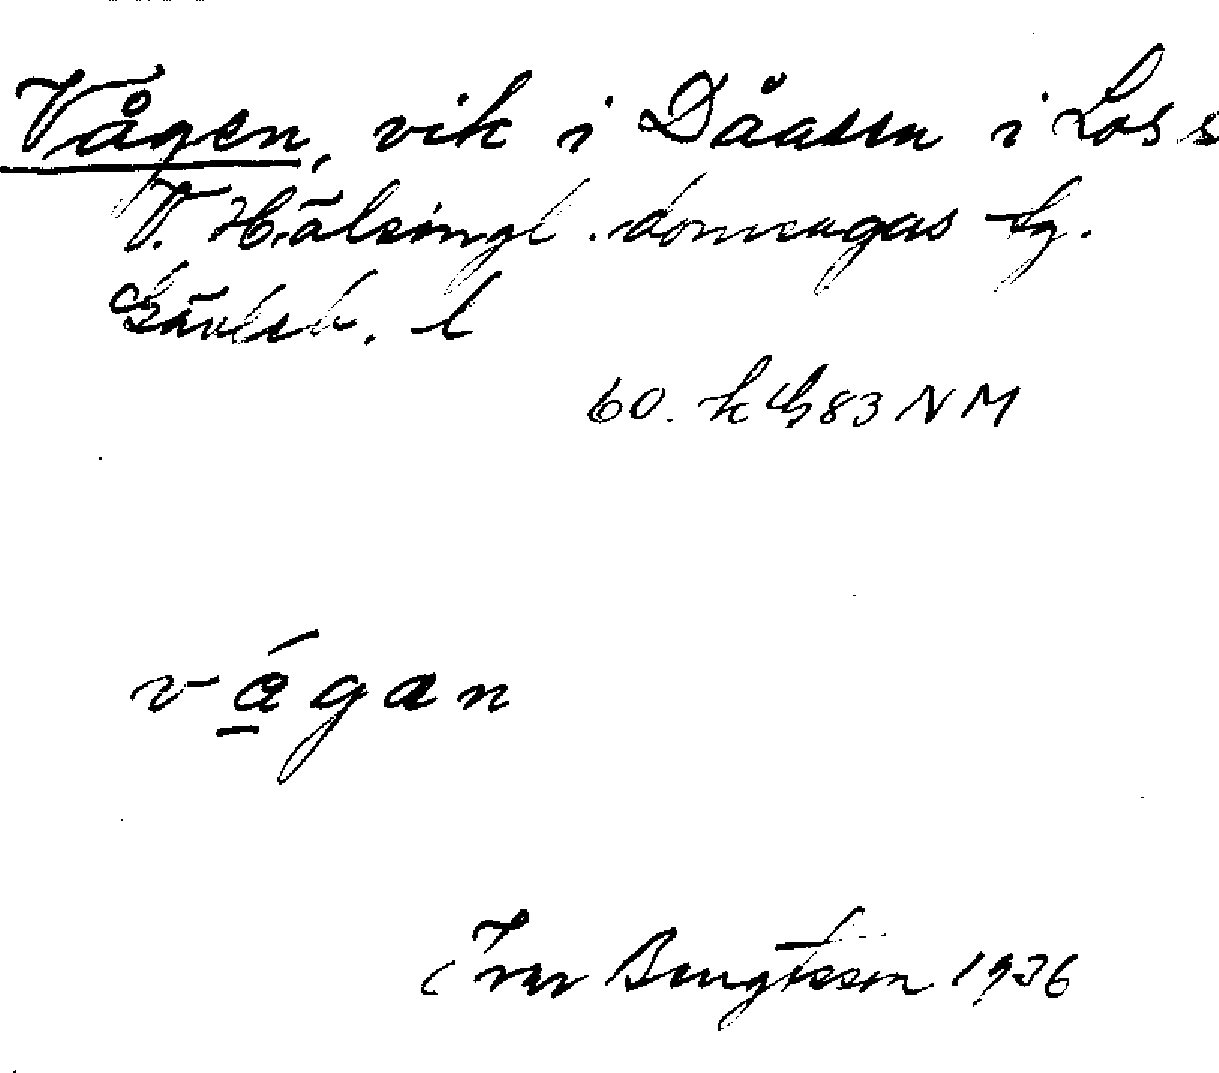 Vågen, vik i Dåasen i Los s
V. Hälsingl. domsagas tg.
Gävleb. l
60. k G 83 NM
vågan
Ivar Bengtsson 1936